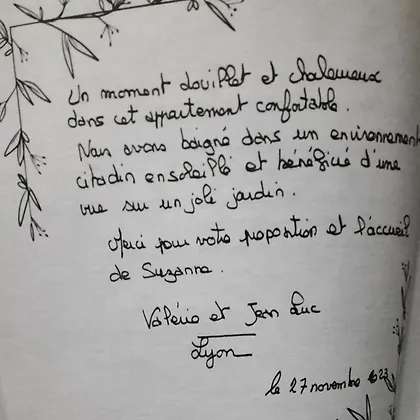 Un moment douillet et chaleureux
dans cet appartement confortable.
Nous avons baigné dans un environnement
citadin ensoleillé et bénéficié d'une
vue sur un joli jardin.
Merci pour votre proposition et l'accueil
de Suzanne.
Valérie et Jean Luc
Lyon
le 27 novembre 2023